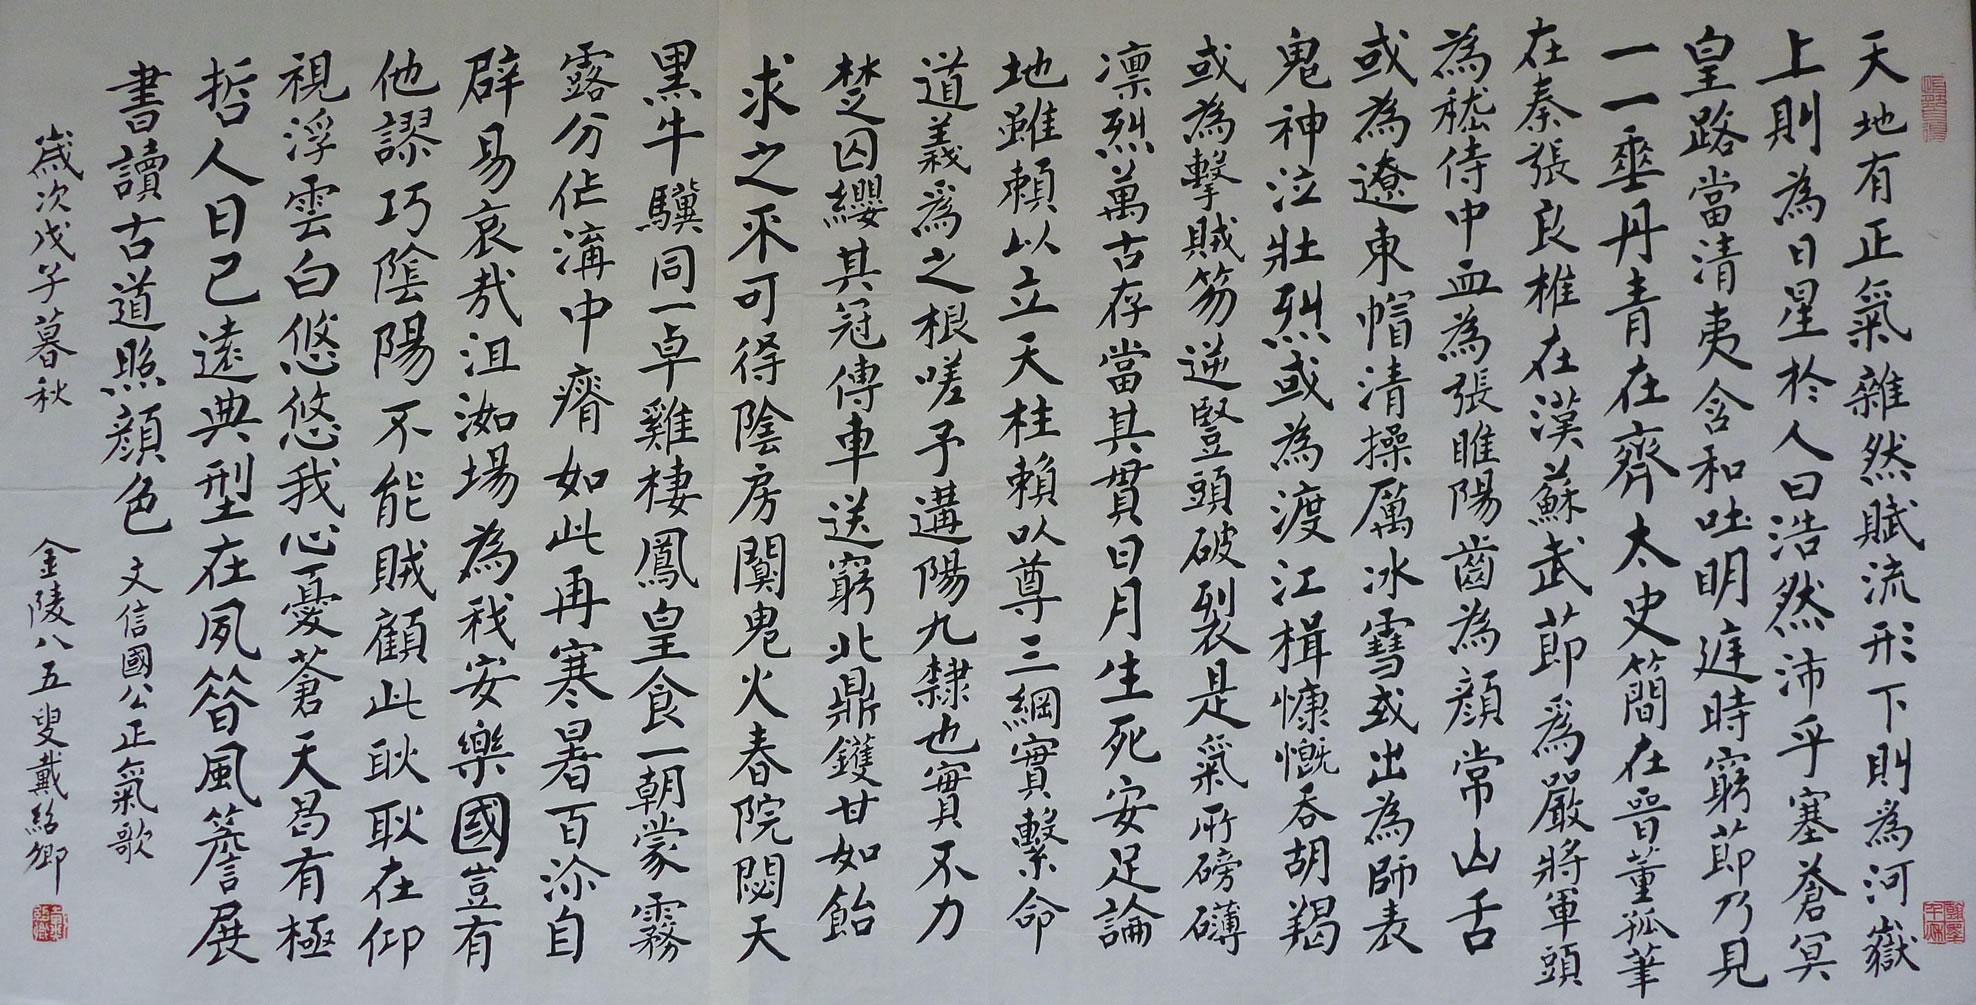 天地有正氣雜然賦流形下則為河嶽
上則為日星於人曰浩然沛乎塞蒼冥
皇路當清夷含和吐明庭時窮節乃見
一一垂丹青在齊太史簡在晉董孤筆
在秦張良椎在漢蘇武節為嚴將軍頭
為嵇侍中血為張睢陽齒為顏常山舌
或為遼東帽清操厲冰雪或出為師表
鬼神泣壯烈或為渡江楫慷慨吞胡羯
或為擊賊笏逆豎頭破裂是氣所磅礴
凛烈萬古存當其貫日月生死安足論
地雖賴以立天柱賴以尊三綱實繫命
道義為之根嗟予遘陽九隸也實不力
楚囚纓其冠傳車送窮北鼎鑊甘如飴
求之不可得陰房闃鬼火春院閟天
黑牛驥同一皁雞棲鳳皇食一朝蒙霧
露分作溝中瘠如此再寒暑百沴自
辟易哀哉沮洳場為我安樂國豈有
他謬巧陰陽不能賊顧此耿耿在仰
視浮雲白悠悠我心憂蒼天曷有極
哲人日已遠典型在夙昔風簷展
書讀古道照顏色 文信國公正氣歌
歲次戊子暮秋 金陵八五叟戴紹卿